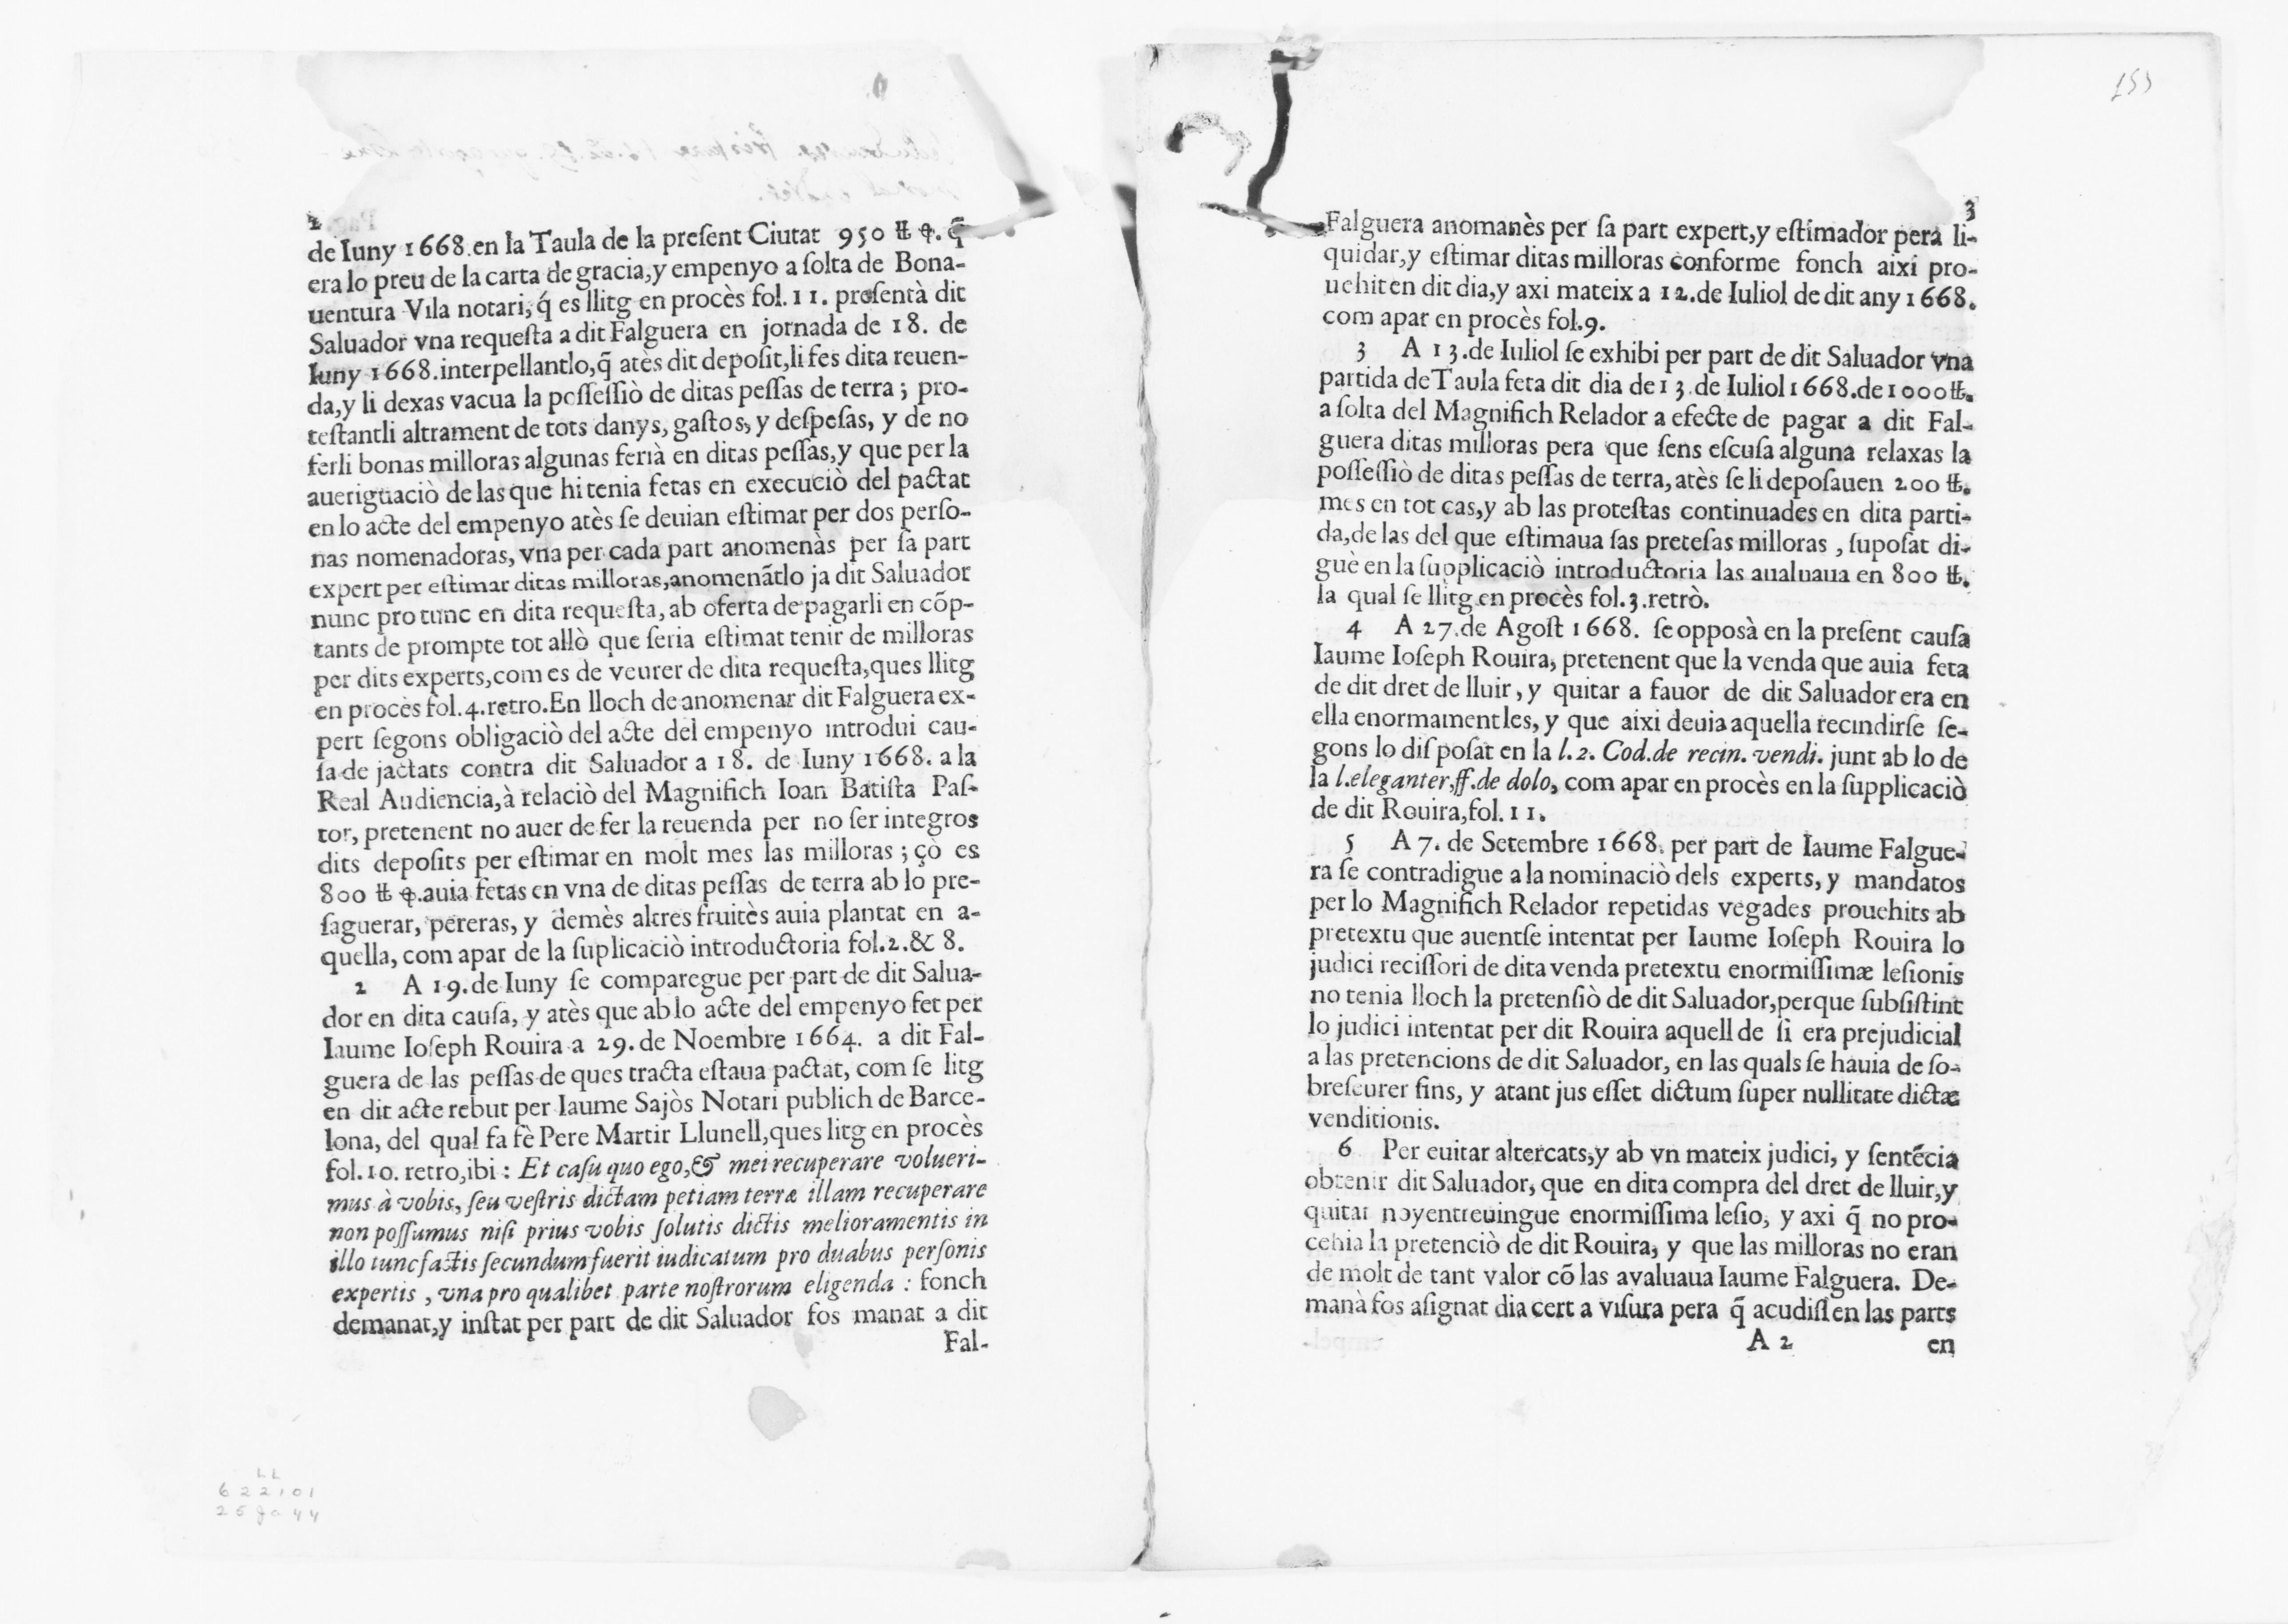 2
de Iuny 1668. en la Taula de la preſent Ciutat 950 ℔ ꝙ. q̃
era lo preu de la carta de gracia,y empenyo a ſolta de Bona-
uentura Vila notari, q́ es llitg en procès fol. 11. preſentà dit
Saluador vna requeſta a dit Falguera en jornada de 18. de
Iuny 1668. interpellantlo,q̃ atès dit depoſit,li fes dita reuen-
da,y li dexas vacua la poſſeſſiò de ditas peſſas de terra ; pro-
teſtantli altrament de tots danys, gaſtos, y deſpeſas, y de no
ferli bonas milloras algunas ferià en ditas peſſas,y que per la
aueriguaciò de las que hi tenia fetas en execuciò del pactat
en lo acte del empenyo atès ſe deuian eſtimar per dos perſo-
nas nomenadoras, vna per cada part anomenàs per ſa part
expert per eſtimar ditas milloras,anomenãtlo ja dit Saluador
nunc pro tunc en dita requeſta, ab oferta de pagarli en cõp-
tants de prompte tot allò que ſeria eſtimat tenir de milloras
per dits experts,com es de veurer de dita requeſta,ques llitg
en procès fol. 4. retro. En lloch de anomenar dit Falguera ex-
pert ſegons obligaciò del acte del empenyo introdui cau-
ſa de jactats contra dit Saluador a 18. de Iuny 1668. a la
Real Audiencia,à relaciò del Magnifich Ioan Batiſta Paſ-
tor, pretenent no auer de fer la reuenda per no ſer integros
dits depoſits per eſtimar en molt mes las milloras ; çò es
800 ℔ ꝙ. auia fetas en vna de ditas peſſas de terra ab lo pre-
ſaguerar, pereras, y demès altres fruitès auia plantat en a-
quella, com apar de la ſuplicaciò introductoria fol. 2. & 8.
2 A 19. de Iuny ſe comparegue per part de dit Salua-
dor en dita cauſa, y atès que ab lo acte del empenyo fet per
Iaume Ioſeph Rouira a 29. de Noembre 1664. a dit Fal-
guera de las peſſas de ques tracta eſtaua pactat, com ſe litg
en dit acte rebut per Iaume Sajòs Notari publich de Barce-
lona, del qual fa fè Pere Martir Llunell,ques litg en procès
fol. 10. retro,ibi : Et caſu quo ego,& mei recuperare volueri-
mus à vobis, ſeu veſtris dictam petiam terræ illam recuperare
non poſſumus niſi prius vobis ſolutis dictis melioramentis in
illo tunc factis ſecundum fuerit iudicatum pro duabus perſonis
expertis , vna pro qualibet parte noſtrorum eligenda : fonch
demanat,y inſtat per part de dit Saluador fos manat a dit
Fal-
3
Falguera anomanès per ſa part expert,y eſtimador pera li-
quidar,y eſtimar ditas milloras conforme fonch aixi pro-
uehit en dit dia,y axi mateix a 12. de Iuliol de dit any 1668.
com apar en procès fol. 9.
3 A 13. de Iuliol ſe exhibi per part de dit Saluador vna
partida de Taula feta dit dia de 13. de Iuliol 1668. de 1000 ℔.
a ſolta del Magnifich Relador a efecte de pagar a dit Fal-
guera ditas milloras pera que ſens eſcuſa alguna relaxas la
poſſeſſiò de ditas peſſas de terra, atès ſe li depoſauen 200 ℔.
mes en tot cas,y ab las proteſtas continuades en dita parti-
da,de las del que eſtimaua ſas preteſas milloras , ſupoſat di-
guè en la ſupplicaciò introductoria las aualuaua en 800 ℔.
la qual ſe llitg en procès fol. 3. retrò.
4 A 27. de Agoſt 1668. ſe opposà en la preſent cauſa
Iaume Ioſeph Rouira, pretenent que la venda que auia feta
de dit dret de lluir, y quitar a fauor de dit Saluador era en
ella enormament les, y que aixi deuia aquella recindirſe ſe-
gons lo diſpoſat en la l. 2. Cod. de recin. vendi. junt ab lo de
la l. eleganter, ff. de dolo, com apar en procès en la ſupplicaciò
de dit Rouira,fol. 11.
5 A 7. de Setembre 1668. per part de Iaume Falgue-
ra ſe contradigue a la nominaciò dels experts, y mandatos
per lo Magnifich Relador repetidas vegades prouehits ab
pretextu que auentſe intentat per Iaume Ioſeph Rouira lo
judici reciſſori de dita venda pretextu enormiſſimæ leſionis
no tenia lloch la pretenſiò de dit Saluador,perque ſubſiſtint
lo judici intentat per dit Rouira aquell de ſi era prejudicial
a las pretencions de dit Saluador, en las quals ſe hauia de ſo-
breſeurer fins, y atant jus eſſet dictum ſuper nullitate dictæ
venditionis.
6 Per euitar altercats,y ab vn mateix judici, y ſentẽcia
obtenir dit Saluador, que en dita compra del dret de lluir,y
quitar noyentreuingue enormiſſima leſio, y axi q̃ no pro-
cehia la pretenciò de dit Rouira, y que las milloras no eran
de molt de tant valor cõ las avaluaua Iaume Falguera. De-
manà fos aſignat dia cert a viſura pera q̃ acudiſſen las parts
A 2 en